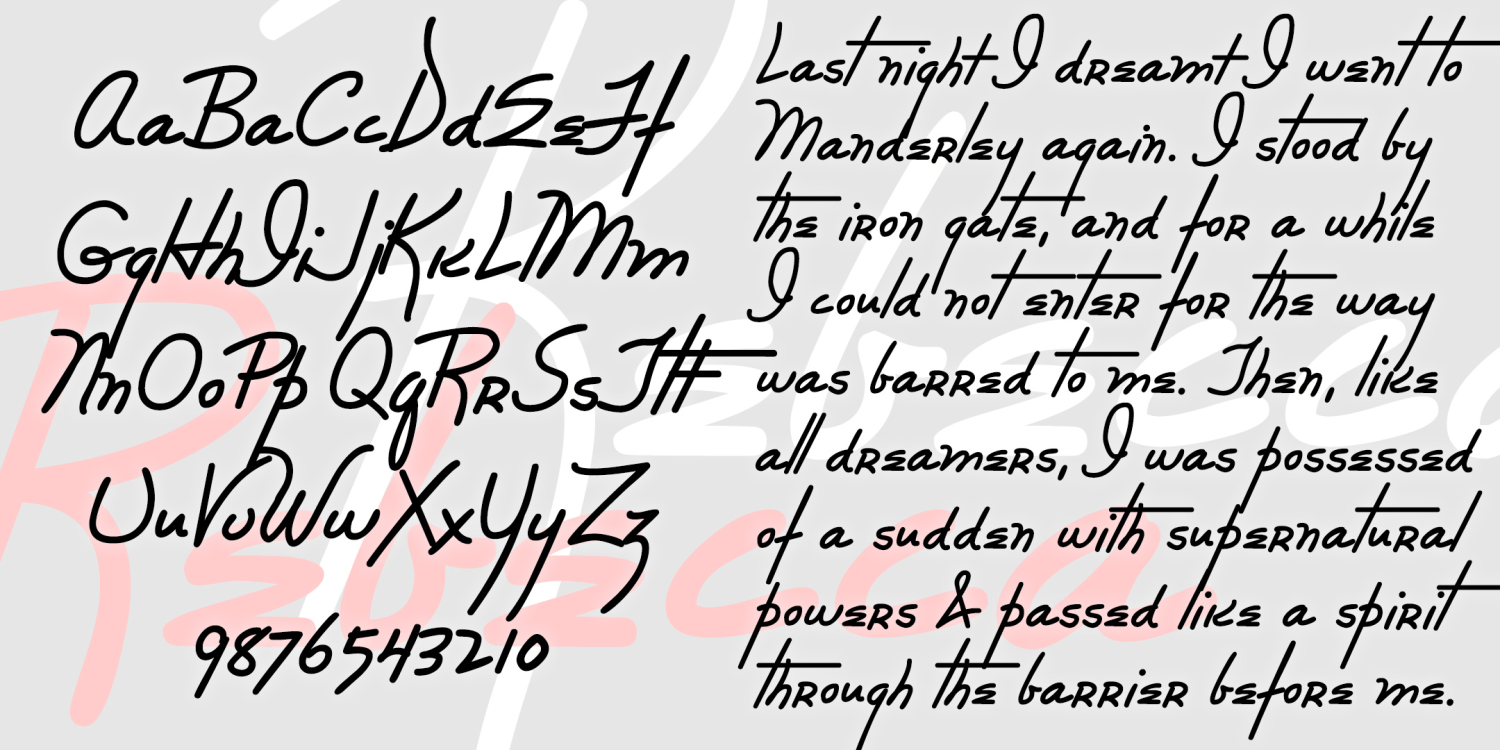 AaBaCcDdEeFf
GgHhIiJjKkLlMm
NnOoPpQqRrSsTt
UuVvWwXxYyZz
9876543210
Last night I dreamt I went to
Manderley again. I stood by
the iron gate, and for a while
I could not enter for the way
was barred to me. Then, like
all dreamers, I was possessed
of a sudden with supernatural
powers & passed like a spirit
through the barrier before me.
Rebecca
Rebecca